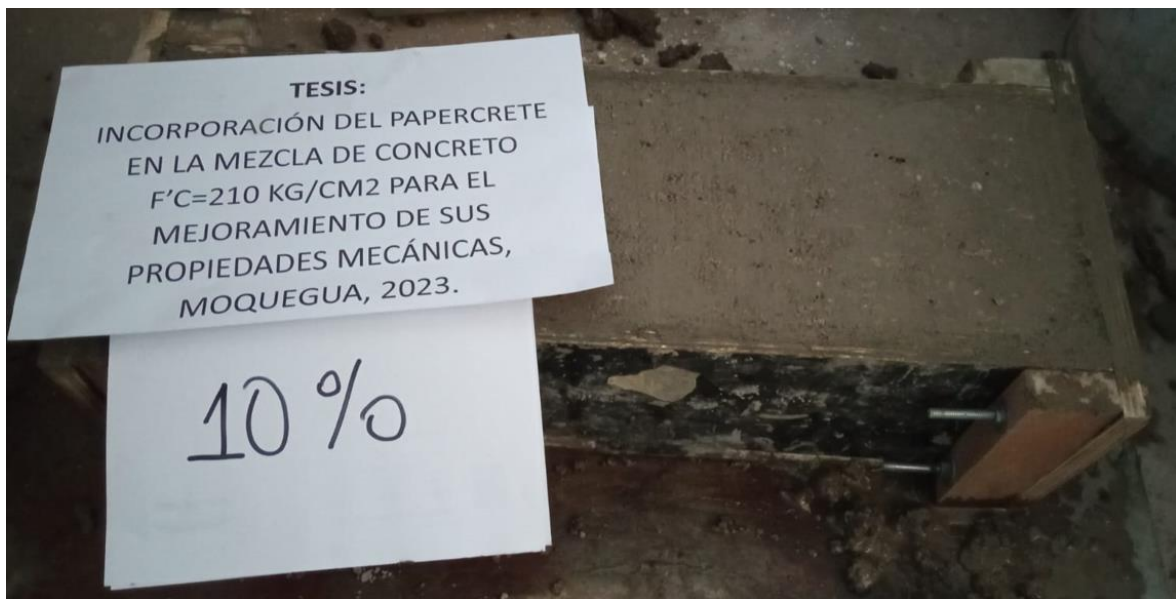 TESIS:
INCORPORACIÓN DEL PAPERCRETE
EN LA MEZCLA DE CONCRETO
F'C=210 KG/CM2 PARA EL
MEJORAMIENTO DE SUS
PROPIEDADES MECÁNICAS,
MOQUEGUA, 2023.
10 %